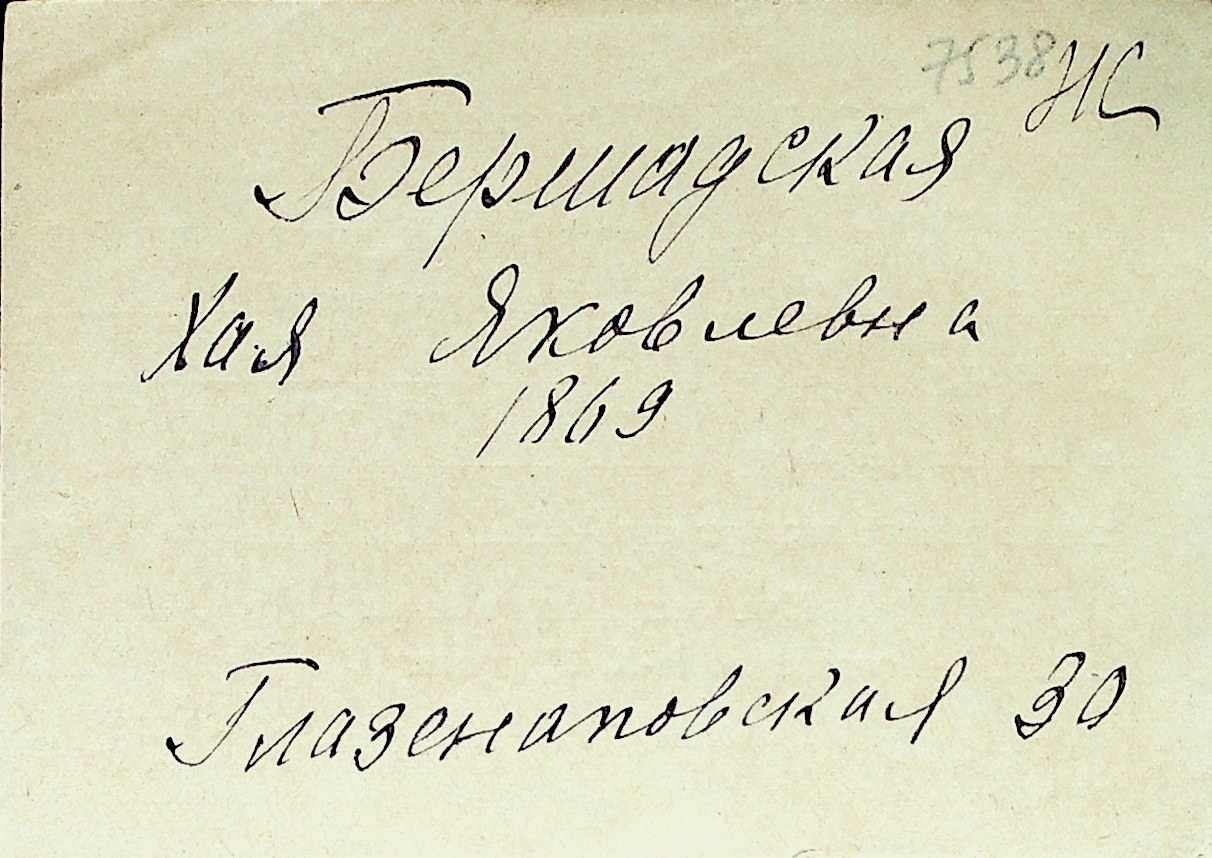 7538 НС
Бершадская
Хая Яковлевна
1869
Глазенаповская 30